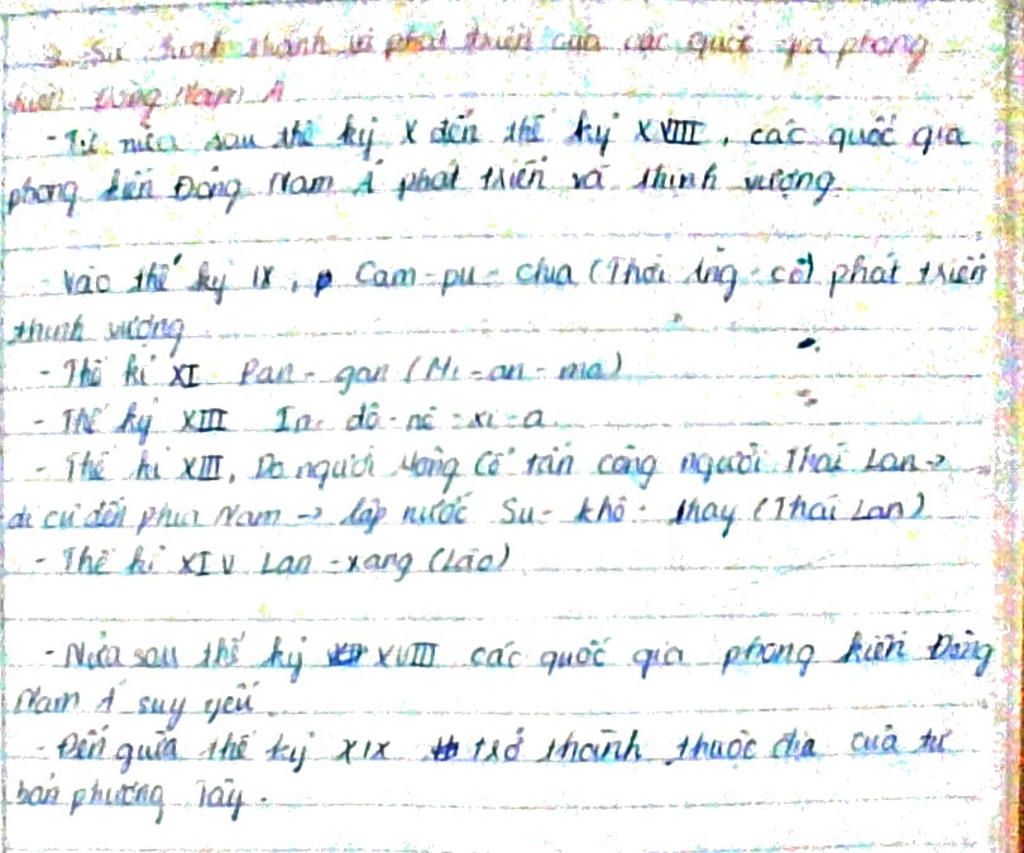 2. Sự hình thành và phát triển của các quốc gia phong
kiến Đông Nam Á
- Từ nửa sau thế kỷ X đến thế kỷ XVIII, các quốc gia
phong kiến Đông Nam Á phát triển và thịnh vượng.
- Vào thế kỷ IX, Cam-pu-chia (Thời Ăng-co) phát triển
thịnh vượng
- Thế kỉ XI Pan-gan (Mi-an-ma)
- Thế kỷ XIII In-đô-nê-xi-a
- Thế kỉ XIII, Do người Mông Cổ tấn công người Thái Lan →
di cư đến phía Nam → lập nước Su-khô-thay (Thái Lan)
- Thế kỉ XIV Lan-xang (Lào)
- Nửa sau thế kỷ XVIII các quốc gia phong kiến Đông
Nam Á suy yếu.
- Đến giữa thế kỷ XIX trở thành thuộc địa của tư
bản phương Tây.